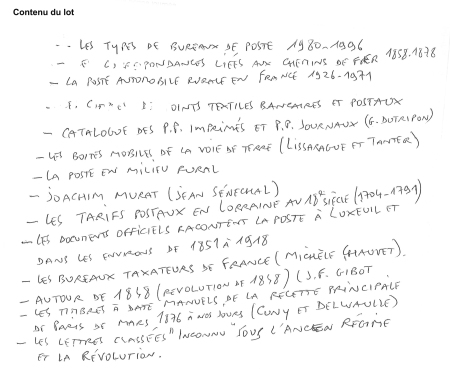 Contenu du lot
- - LES TYPES DE BUREAUX DE POSTE 1980-1996
- LIÉES AUX CHEMINS DE FER 1858-1878
- LA POSTE AUTOMOBILE RURALE EN FRANCE 1926-1971
TEXTILES BANCAIRES ET POSTAUX
- CATALOGUE DES P.P. IMPRIMÉS ET P.P. JOURNAUX (G. DUTRIPON)
- LES BOITES MOBILES DE LA VOIE DE TERRE (LISSARAGUE ET TANTER)
- LA POSTE EN MILIEU RURAL
- JOACHIM MURAT (JEAN SÉNÉCHAL)
- LES TARIFS POSTAUX EN LORRAINE AU 18e SIÈCLE (1704-1791)
- LES DOCUMENTS OFFICIELS RACONTENT LA POSTE À LUXEUIL ET
DANS LES ENVIRONS DE 1851 À 1918
- LES BUREAUX TAXATEURS DE FRANCE (MICHÈLE CHAUVET).
- AUTOUR DE 1848 (REVOLUTION DE 1848) (J.F. GIBOT
- LES TIMBRES À DATE MANUELS DE LA RECETTE PRINCIPALE
DE PARIS DE MARS 1876 À NOS JOURS (CUNY ET DELWAULLE)
- LES LETTRES CLASSÉES "INCONNU" SOUS L'ANCIEN RÉGIME
ET LA RÉVOLUTION.